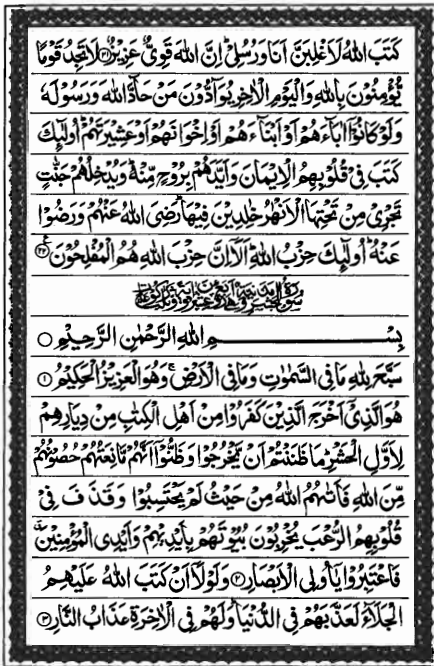 كَتَبَ اللهُ لَاَغْلِبَنَّ اَنَا وَرُسُلِيْ ؕ اِنَّ اللهَ قَوِيٌّ عَزِيْزٌ ﴿۲۱﴾ لَا تَجِدُ قَوْمًا
يُّؤْمِنُوْنَ بِاللهِ وَالْيَوْمِ الْاٰخِرِ يُوَآدُّوْنَ مَنْ حَآدَّ اللهَ وَرَسُوْلَهٗ
وَلَوْ كَانُوْۤا اٰبَآءَهُمْ اَوْ اَبْنَآءَهُمْ اَوْ اِخْوَانَهُمْ اَوْ عَشِيْرَتَهُمْ ؕ اُولٰٓئِكَ
كَتَبَ فِيْ قُلُوْبِهِمُ الْاِيْمَانَ وَاَيَّدَهُمْ بِرُوْحٍ مِّنْهُ ؕ وَيُدْخِلُهُمْ جَنّٰتٍ
تَجْرِيْ مِنْ تَحْتِهَا الْاَنْهٰرُ خٰلِدِيْنَ فِيْهَا ؕ رَضِيَ اللهُ عَنْهُمْ وَرَضُوْا
عَنْهُ ؕ اُولٰٓئِكَ حِزْبُ اللهِ ؕ اَلَاۤ اِنَّ حِزْبَ اللهِ هُمُ الْمُفْلِحُوْنَ ﴿۲۲﴾
بِسْمِ اللهِ الرَّحْمٰنِ الرَّحِيْمِ
سَبَّحَ لِلّٰهِ مَا فِي السَّمٰوٰتِ وَمَا فِي الْاَرْضِ ۚ وَهُوَ الْعَزِيْزُ الْحَكِيْمُ ﴿۱﴾
هُوَ الَّذِيْۤ اَخْرَجَ الَّذِيْنَ كَفَرُوْا مِنْ اَهْلِ الْكِتٰبِ مِنْ دِيَارِهِمْ
لِاَوَّلِ الْحَشْرِ ؕ مَا ظَنَنْتُمْ اَنْ يَّخْرُجُوْا وَظَنُّوْۤا اَنَّهُمْ مَّانِعَتُهُمْ حُصُوْنُهُمْ
مِّنَ اللهِ فَاَتٰىهُمُ اللهُ مِنْ حَيْثُ لَمْ يَحْتَسِبُوْا وَقَذَفَ فِيْ
قُلُوْبِهِمُ الرُّعْبَ يُخْرِبُوْنَ بُيُوْتَهُمْ بِاَيْدِيْهِمْ وَاَيْدِي الْمُؤْمِنِيْنَ ۗ
فَاعْتَبِرُوْا يٰۤاُولِي الْاَبْصَارِ ﴿۲﴾ وَلَوْلَاۤ اَنْ كَتَبَ اللهُ عَلَيْهِمُ
الْجَلَآءَ لَعَذَّبَهُمْ فِي الدُّنْيَا ؕ وَلَهُمْ فِي الْاٰخِرَةِ عَذَابُ النَّارِ ﴿۳﴾